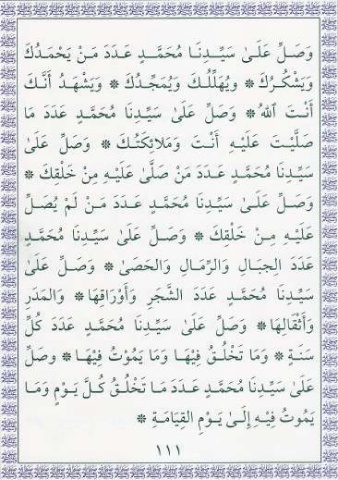 وَصَلِّ عَلَىٰ سَيِّدِنَا مُحَمَّدٍ عَدَدَ مَنْ يَحْمَدُكَ
وَيَشْكُرُكَ * وَيُهَلِّلُكَ وَيُمَجِّدُكَ * وَيَشْهَدُ أَنَّكَ
أَنْتَ اللهُ * وَصَلِّ عَلَىٰ سَيِّدِنَا مُحَمَّدٍ عَدَدَ مَا
صَلَّيْتَ عَلَيْهِ أَنْتَ وَمَلَائِكَتُكَ * وَصَلِّ عَلَىٰ
سَيِّدِنَا مُحَمَّدٍ عَدَدَ مَنْ صَلَّىٰ عَلَيْهِ مِنْ خَلْقِكَ *
وَصَلِّ عَلَىٰ سَيِّدِنَا مُحَمَّدٍ عَدَدَ مَنْ لَمْ يُصَلِّ
عَلَيْهِ مِنْ خَلْقِكَ * وَصَلِّ عَلَىٰ سَيِّدِنَا مُحَمَّدٍ
عَدَدَ الجِبَالِ وَالرِّمَالِ وَالحَصَىٰ * وَصَلِّ عَلَىٰ
سَيِّدِنَا مُحَمَّدٍ عَدَدَ الشَّجَرِ وَأَوْرَاقِهَا * وَالمَدَرِ
وَأَثْقَالِهَا * وَصَلِّ عَلَىٰ سَيِّدِنَا مُحَمَّدٍ عَدَدَ كُلِّ
سَنَةٍ * وَمَا تَخْلُقُ فِيْهَا وَمَا يَمُوْتُ فِيْهَا * وَصَلِّ
عَلَىٰ سَيِّدِنَا مُحَمَّدٍ عَدَدَ مَا تَخْلُقُ كُلَّ يَوْمٍ وَمَا
يَمُوْتُ فِيْهِ إِلَىٰ يَوْمِ القِيَامَةِ *
١١١